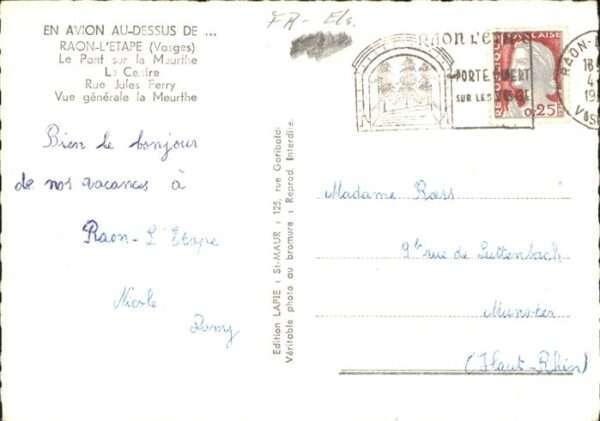 EN AVION AU-DESSUS DE ...
RAON-L'ETAPE (Vosges)
Le Pont sur la Meurthe
Le Centre
Rue Jules Ferry
Vue générale la Meurthe
Bien le bonjour
de nos vacances à
Raon-L'Etape
Nicole
Edition LAPIE : St-MAUR : 125, rue Garibaldi
Véritable photo au bromure : Reprod. Interdite.
FR-Els.
RAON L'ETAPE
PORTE OUVERTE
SUR LES VOSGES
FRANÇAISE
0,25
RAON-
18
4
19
Madame Ross
9 rue de Luttenbach
Munster
(Haut-Rhin)